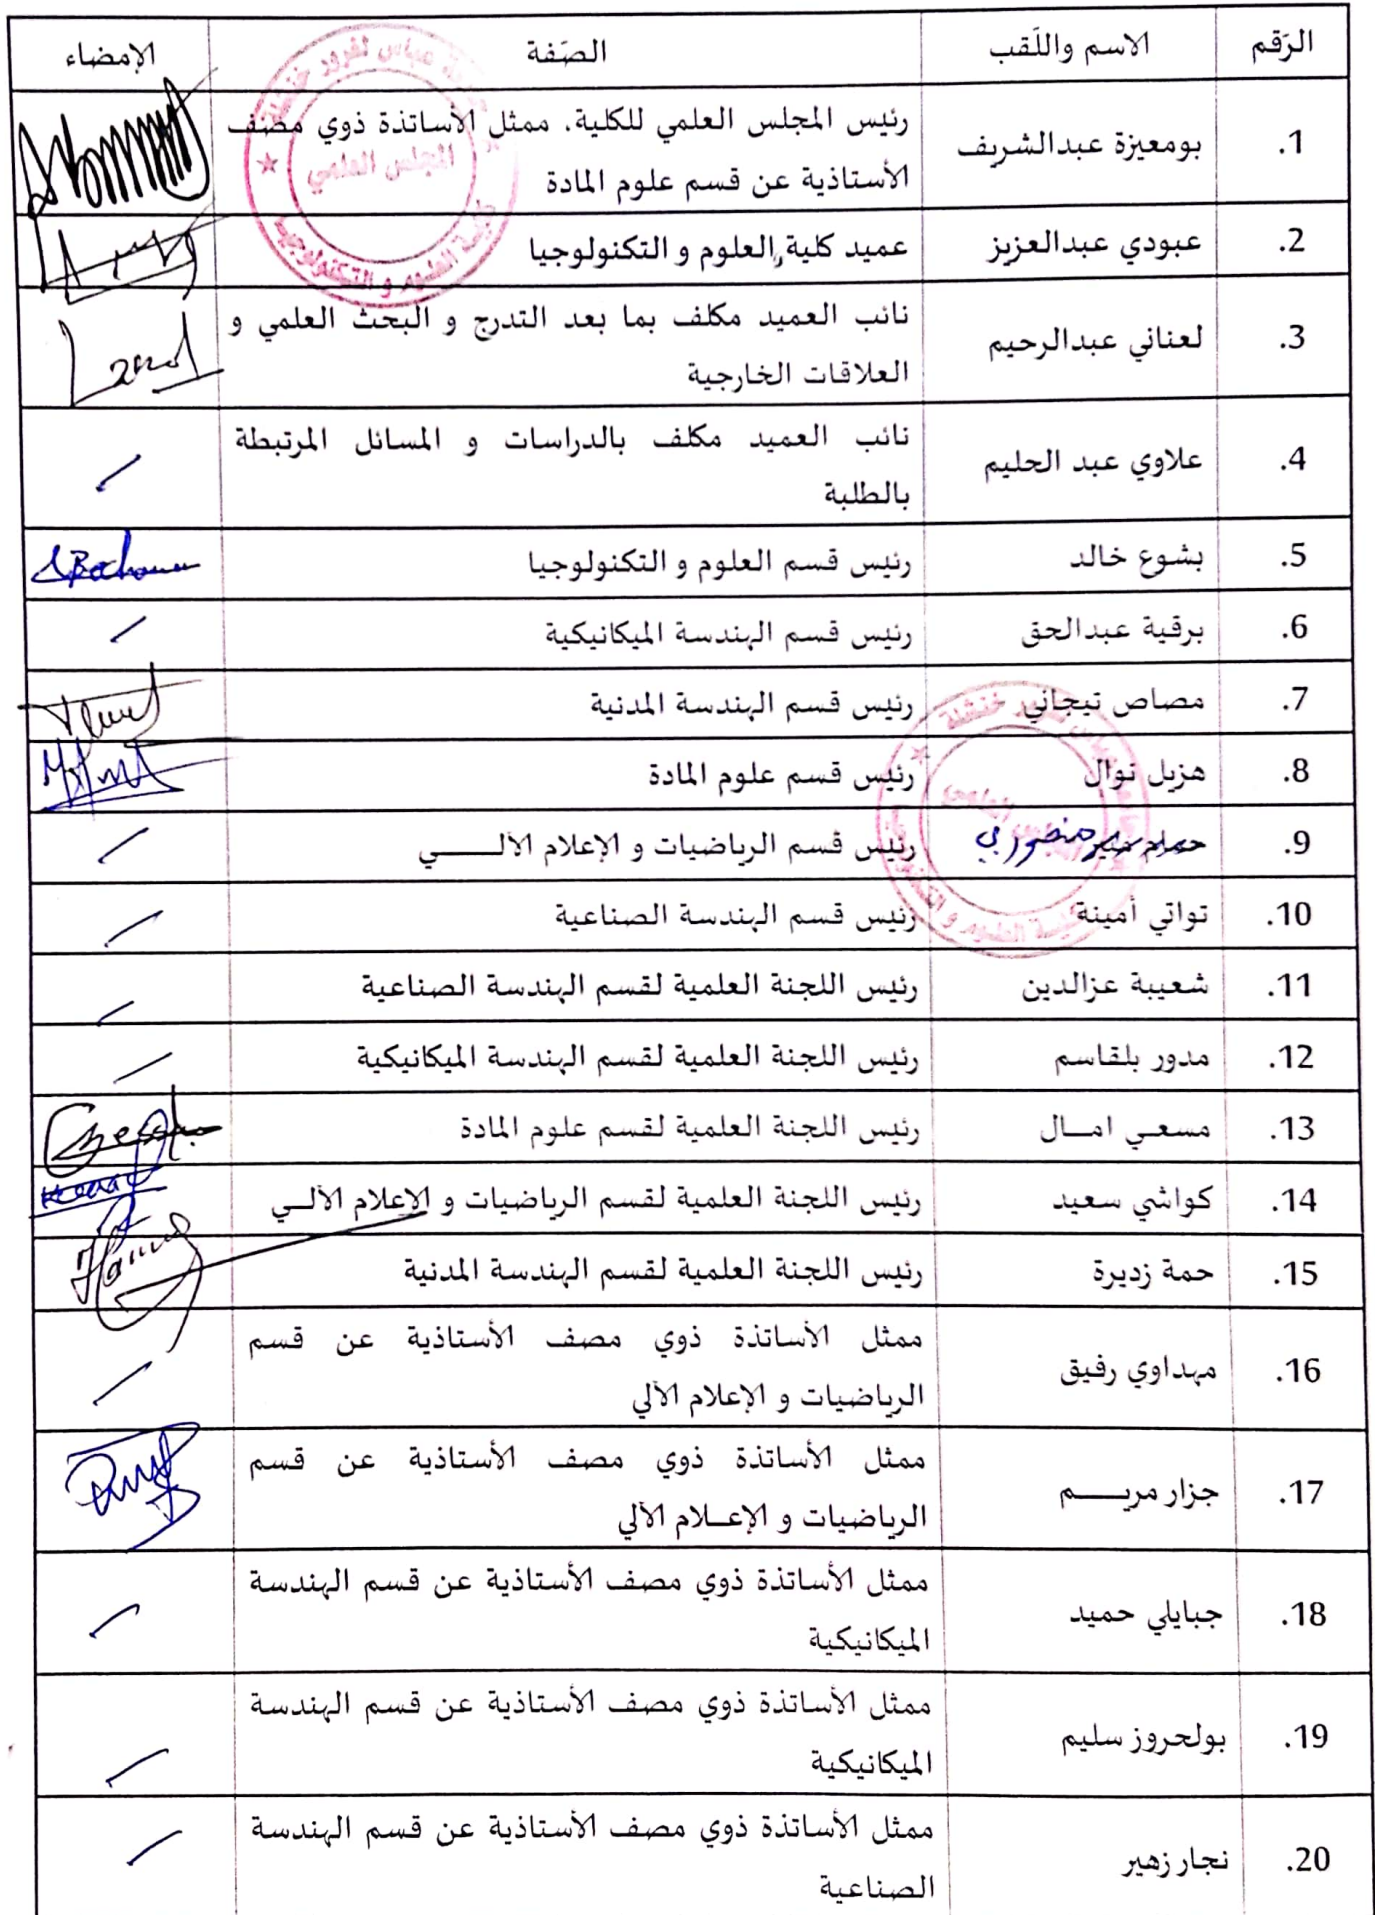 الرَقم الاسم واللَقب الصَفة الإمضاء
1. بومعيزة عبدالشريف رئيس المجلس العلمي للكلية. ممثل الأساتذة ذوي مصف
الأستاذية عن قسم علوم المادة
2. عبودي عبدالعزيز عميد كلية العلوم و التكنولوجيا
3. لعناني عبدالرحيم نائب العميد مكلف بما بعد التدرج و البحث العلمي و
العلاقات الخارجية
4. علاوي عبد الحليم نائب العميد مكلف بالدراسات و المسائل المرتبطة
بالطلبة
5. بشوع خالد رئيس قسم العلوم و التكنولوجيا
6. برقية عبدالحق رئيس قسم الهندسة الميكانيكية
7. مصاص تيجاني رئيس قسم الهندسة المدنية
8. هزيل نوال رئيس قسم علوم المادة
9. منصوري رئيس قسم الرياضيات و الإعلام الألـــــي
10. تواتي أمينة رئيس قسم الهندسة الصناعية
11. شعيبة عزالدين رئيس اللجنة العلمية لقسم الهندسة الصناعية
12. مدور بلقاسم رئيس اللجنة العلمية لقسم الهندسة الميكانيكية
13. مسعـي امــال رئيس اللجنة العلمية لقسم علوم المادة
14. كواشي سعيد رئيس اللجنة العلمية لقسم الرياضيات و الإعلام الألــي
15. حمة زديرة رئيس اللجنة العلمية لقسم الهندسة المدنية
16. مهداوي رفيق ممثل الأساتذة ذوي مصف الأستاذية عن قسم
الرياضيات و الإعلام الألي
17. جزار مريـــــم ممثل الأساتذة ذوي مصف الأستاذية عن قسم
الرياضيات و الإعــلام الألي
18. جبايلي حميد ممثل الأساتذة ذوي مصف الأستاذية عن قسم الهندسة
الميكانيكية
19. بولحروز سليم ممثل الأساتذة ذوي مصف الأستاذية عن قسم الهندسة
الميكانيكية
20. نجار زهير ممثل الأساتذة ذوي مصف الأستاذية عن قسم الهندسة
الصناعية
عباس لغرور خنشلة
المجلس العلمي
كلية العلوم و التكنولوجيا